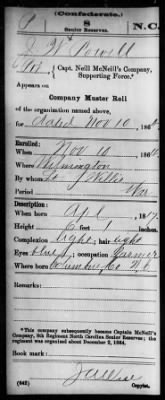 (Confederate.)
P 8 N.C.
Senior Reserves.
J. W. Powell
Pvt, Capt. Neill McNeill's Company, Supporting Force.*
Appears on
Company Muster Roll
of the organization named above,
for dated Nov 10, 186
Enlisted:
When Nov 10, 186
Where Wilmington
By whom
Period War
Description:
When born Apl, 181
Height 6 feet 1 inches
Complexion light; hair light
Eyes blue; occupation Farmer
Where born Columbus Co N.C.
*This company subsequently became Captain McNeill's Company, 8th Regiment North Carolina Senior Reserves; the regiment was organized about December 2, 1864.
Book mark:
(642) Copyist.